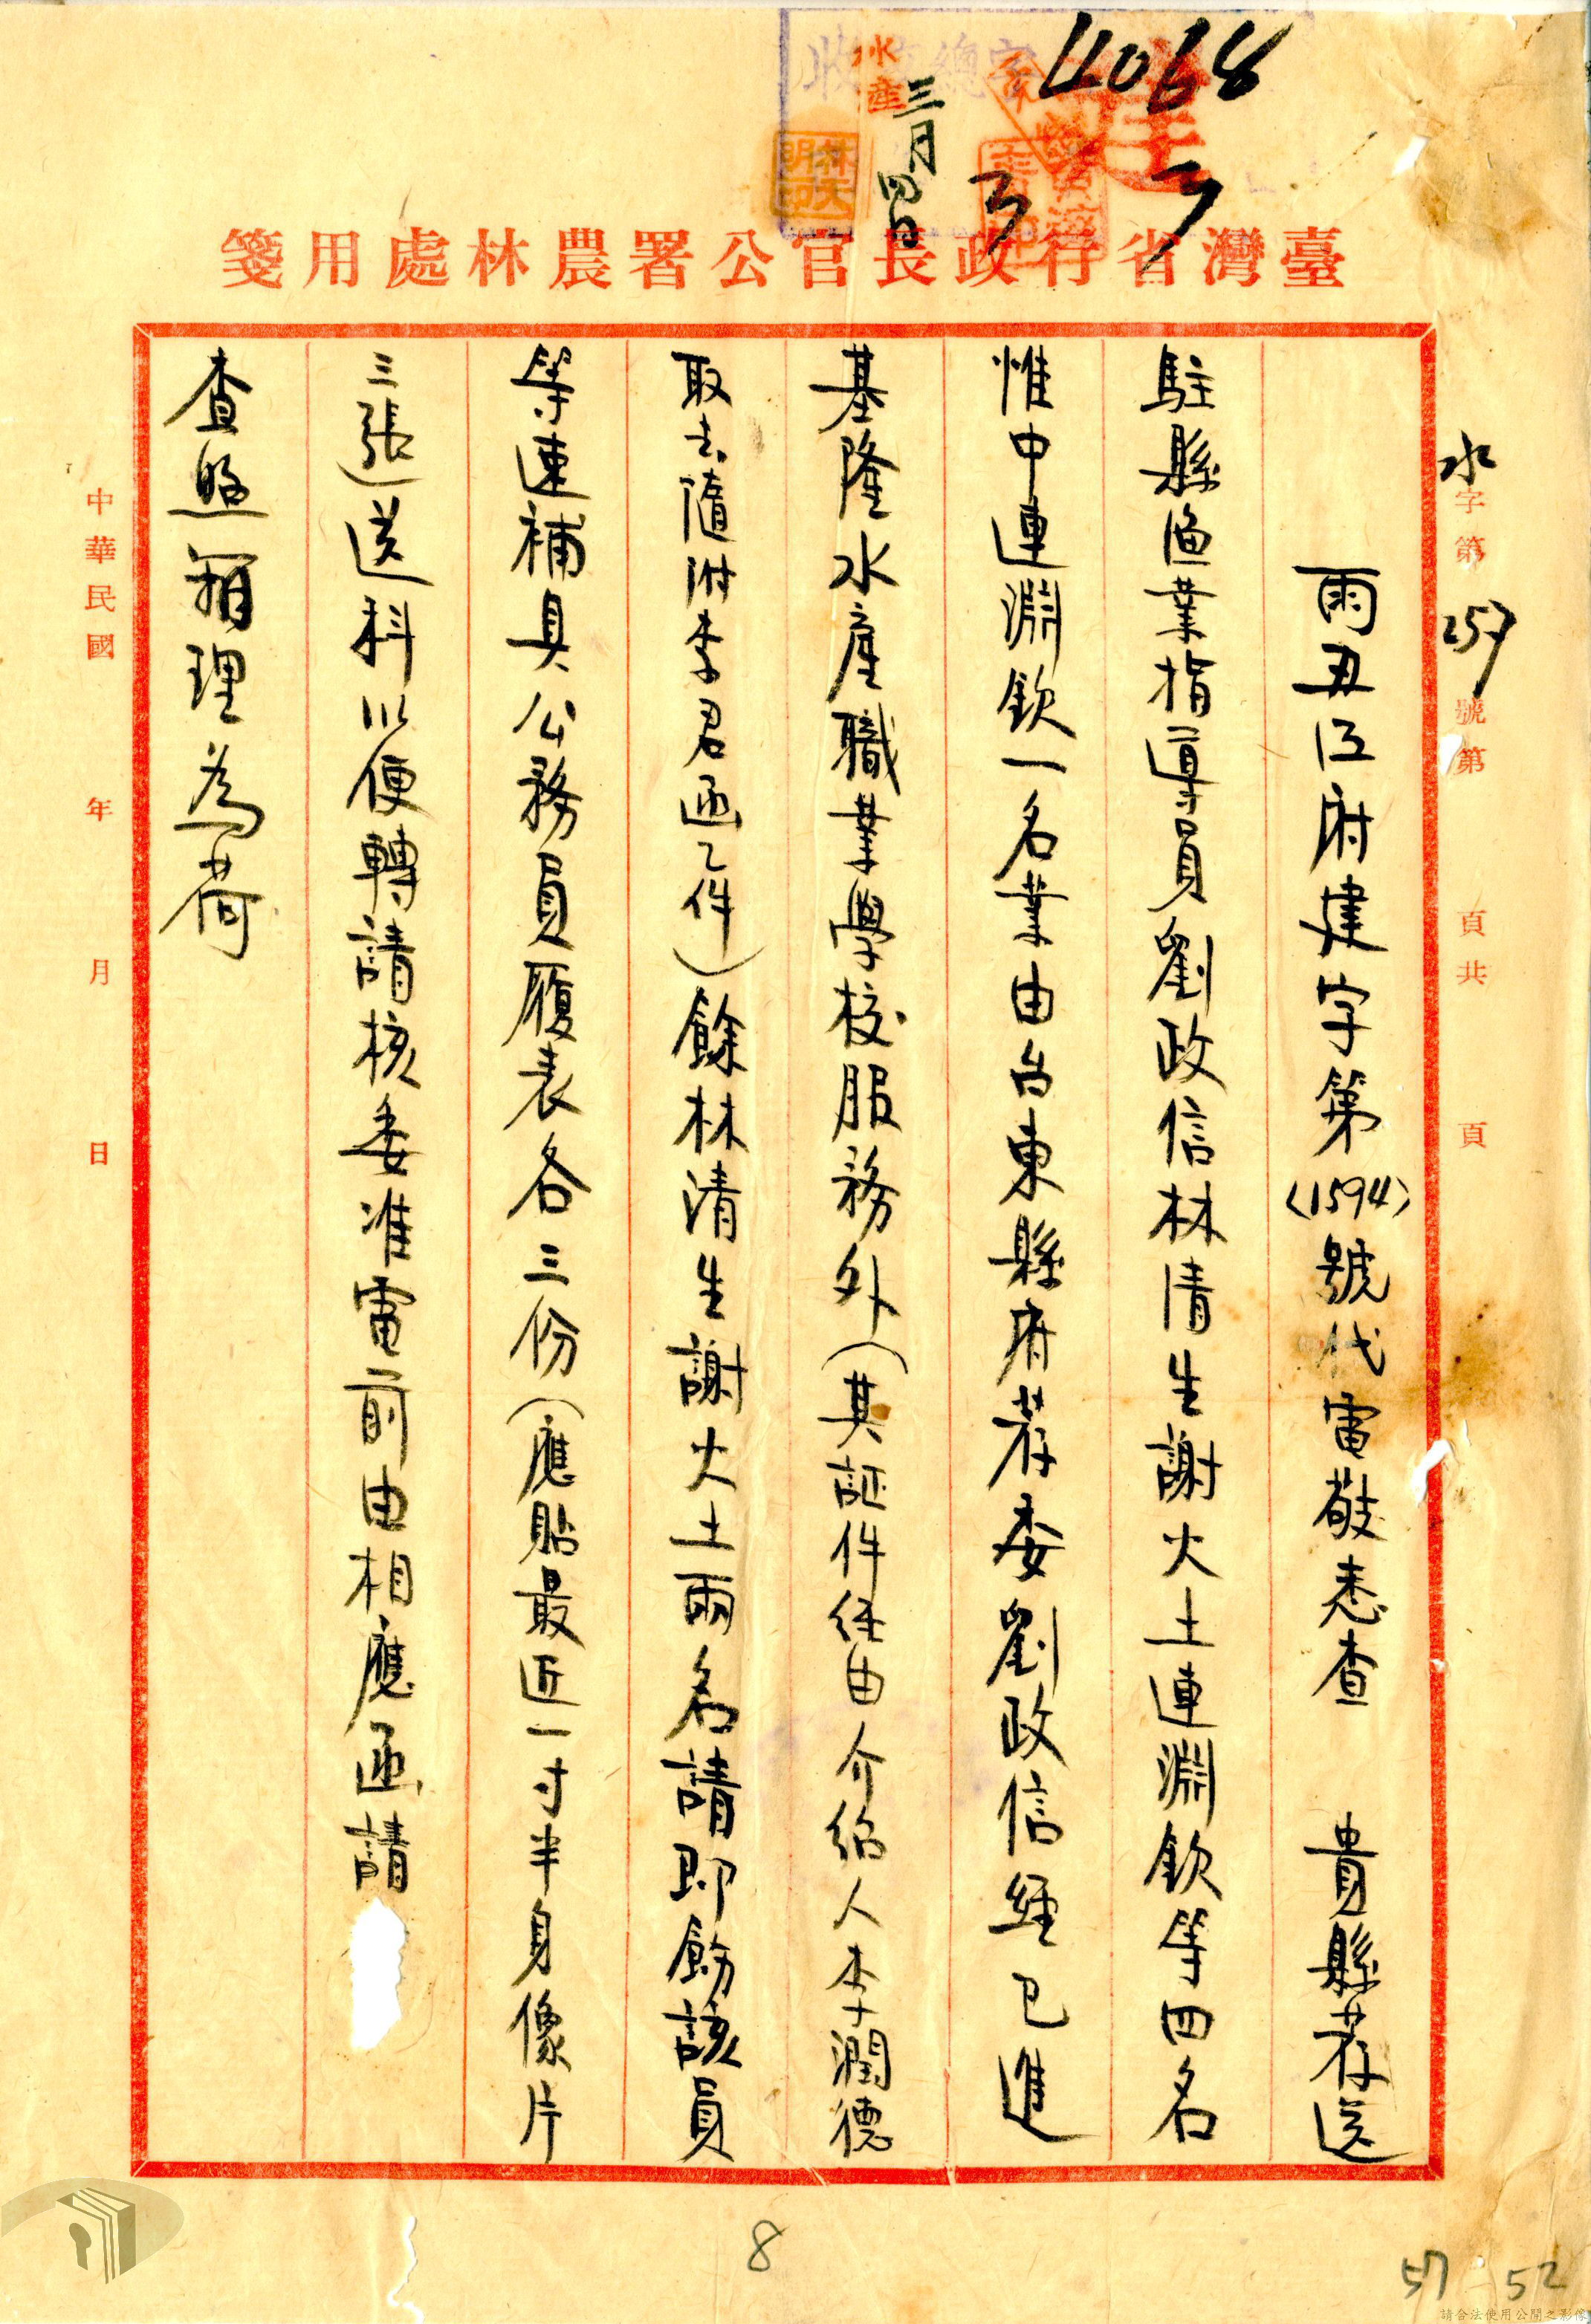 4068
水產
三月四日
臺灣省行政長官公署農林處用箋
水字第257號第 頁共 頁
兩丑江府建字第(1594)號代電敬悉查 貴縣荐送
駐縣漁業指導員劉政信林清生謝火土連淵欽等四名
惟中連淵欽一名業由台東縣府荐委劉政信經已進
基隆水產職業學校服務外(其証件經由介紹人李潤德
取去隨附李君函乙件)餘林清生謝火土兩名請即飭該員
等速補具公務員履表各三份(應貼最近一寸半身像片
三張)送科以便轉請核委准電前由相應函請
查照辦理為荷
中華民國 年 月 日
8
57
52
請合法使用公開之影像